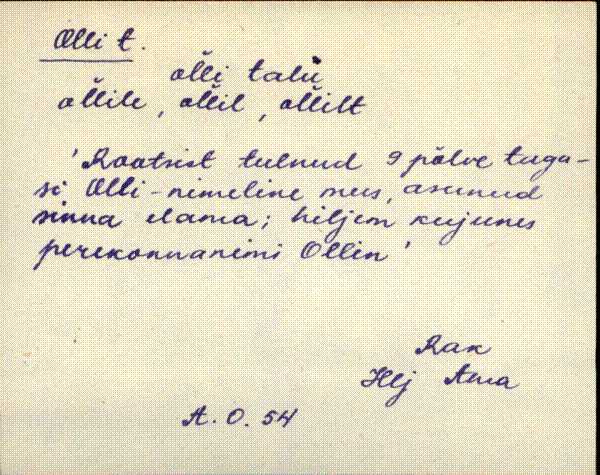 Olli t.
olli talu
ollile, ollil, ollilt
'Rootsist tulnud 9 põlve taga-
si Olli-nimeline mees, asunud
sinna elama; hiljem kujunes
perekonnanimi Ollin'
Rak
Hlj
A.O. 54